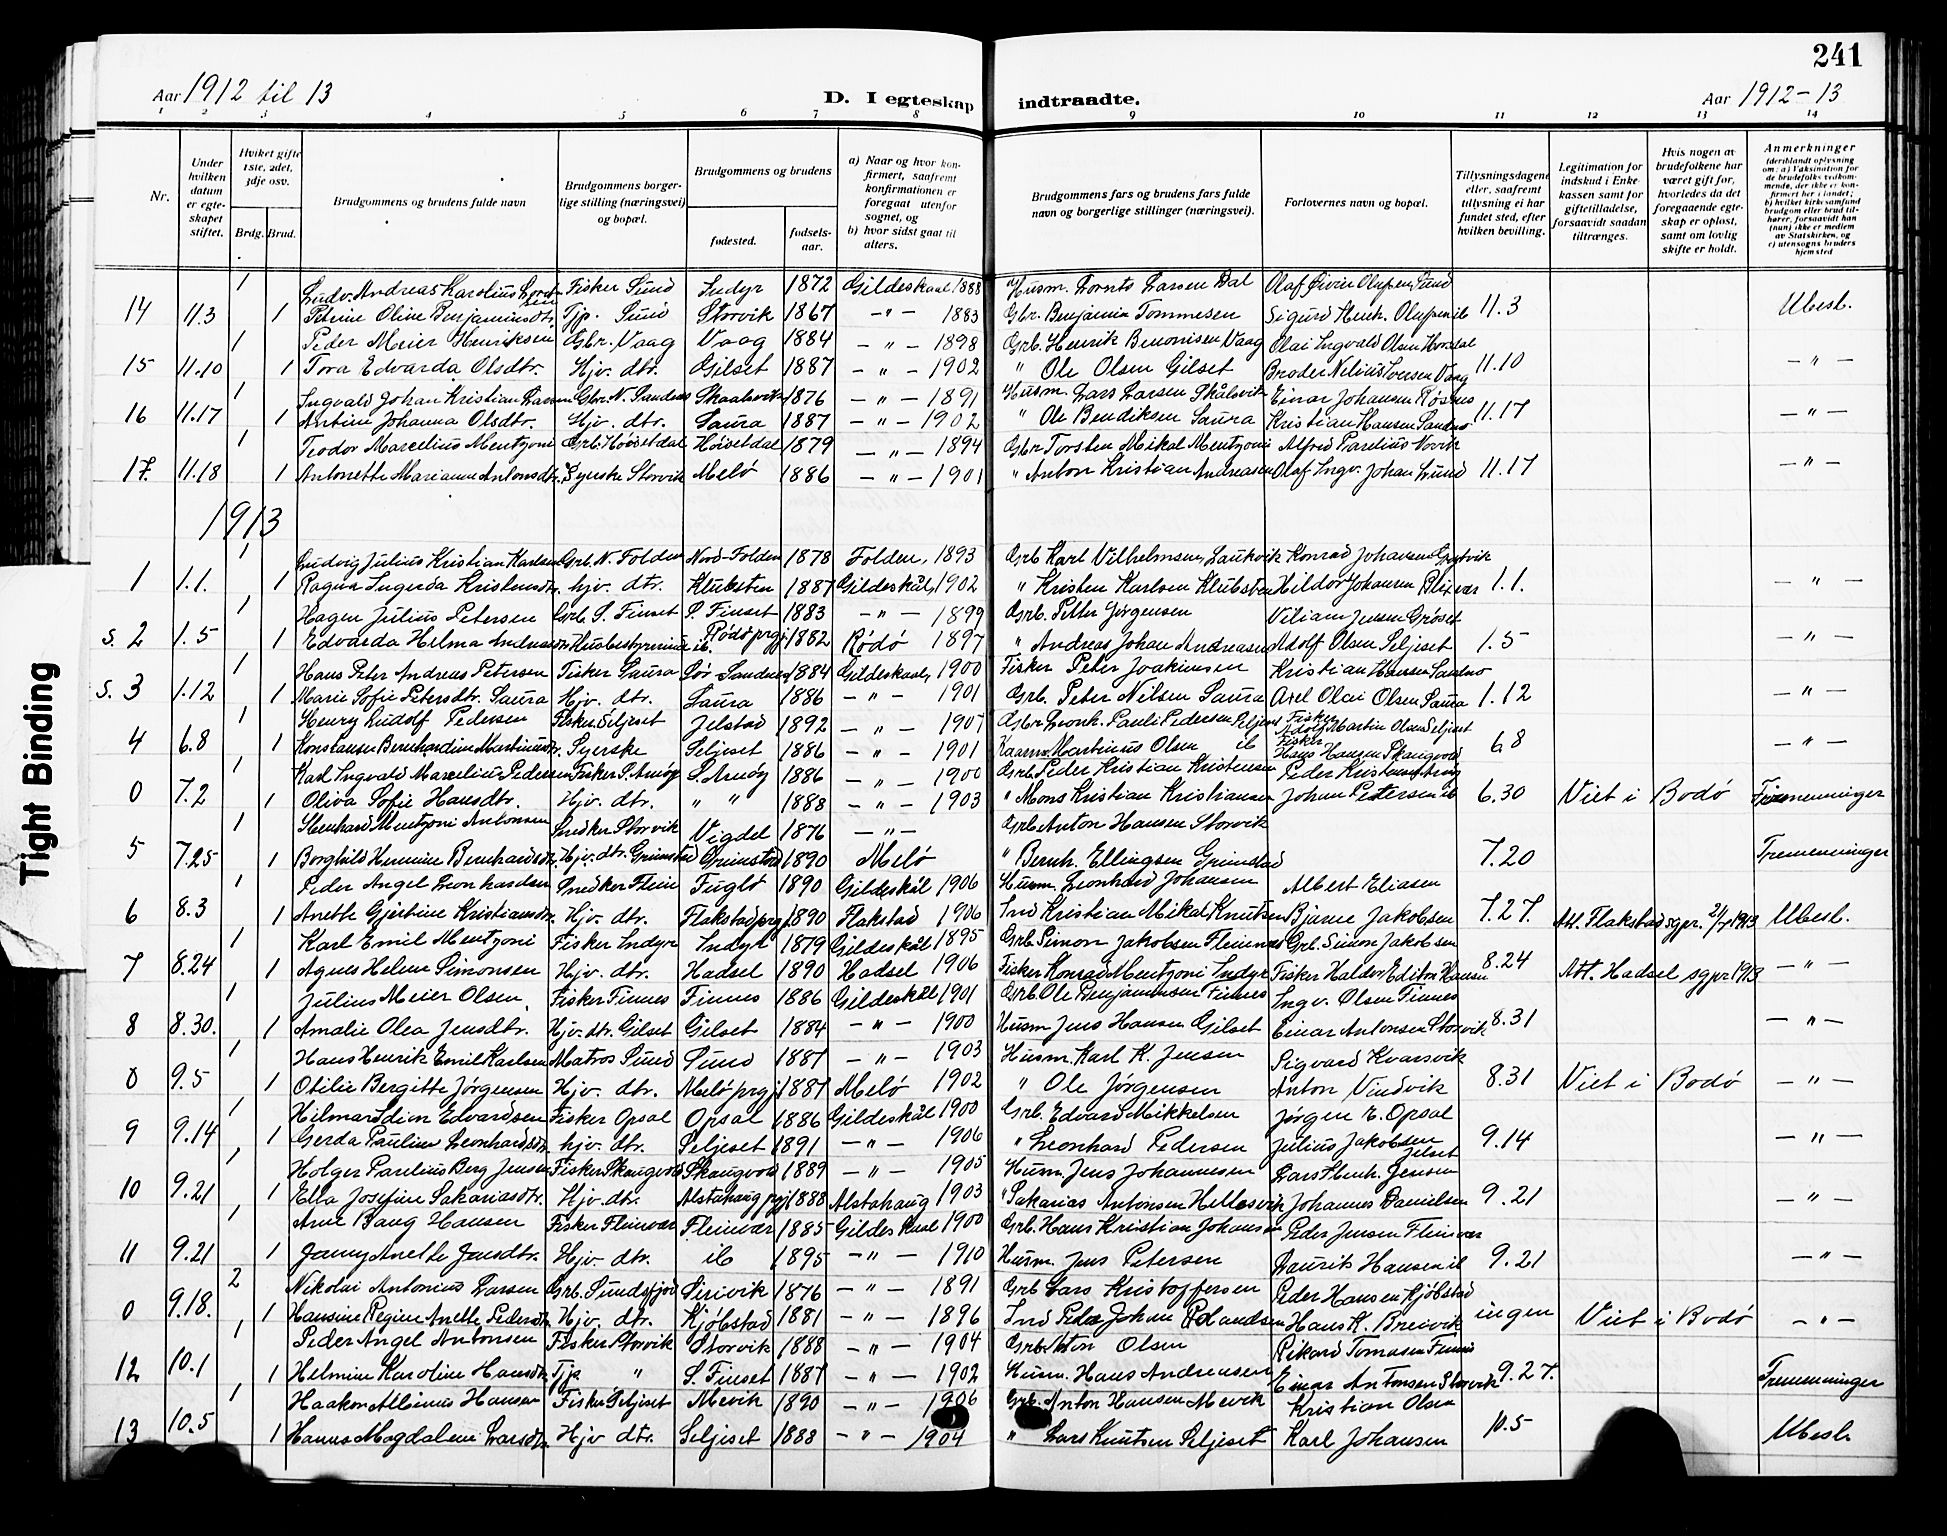 241
Aar 1912 til 13
D. I egteskap indtraadte.
Aar 1912-13
1 2 3 4 5 6 7 8 9 10 11 12 13 14
Nr.
Under hvilken datum er egteskapet stiftet.
Hviket gifte 1ste, 2det, 3dje osv.
Brdg. Brud.
Brudgommens og brudens fulde navn
Brudgommens borgerlige stilling (næringsvei) og bopæl.
Brudgommens og brudens
fødested.
fødselsaar.
a) Naar og hvor konfirmert, saafremt konfirmationen er foregaat utenfor sognet, og
b) hvor sidst gaat til alters.
Brudgommens fars og brudens fars fulde navn og borgerlige stillinger (næringsvei).
Forlovernes navn og bopæl.
Tillysningsdagene eller, saafremt tillysning ei har fundet sted, efter hvilken bevilling.
Legitimation for indskud i Enkekassen samt for giftetilladelse, forsaavidt saadan tiltrænges.
Hvis nogen av brudefolkene har været gift før, hvorledes da det foregaaende egteskap er opløst, samt om lovlig skifte er holdt.
Anmerkninger
(deriblandt oplysning om: a) Vaksination for de brudefolks vedkommende, der ikke er konfirmert her i landet; b) hvilket kirkesamfund brudgom eller brud tilhører, forsaavidt han (hun) ikke er medlem av Statskirken, og c) utensogns bruders hjemsted
1 Ludv. Andreas Karolius Lorntsen Fisker Sund Indyr 1872 Gildeskaal 1888 Husm. Lornts Larsen Dal Olaf Øivin Olufsen Sund
14 11.3 1 Petrine Oline Benjaminsdtr. Tjp. Sund Storvik 1867 -"- 1883 Gbr. Benjamin Tommesen Sigurd Henh. Olufsen ib 11.3 Ubesl.
1 Peder Meier Henriksen Gbr. Vaag Vaag 1884 -"- 1898 Grb. Henrik Benonisen Vaag Olai Ingvald Olsen
15 11.10 1 Tora Edvarda Olsdtr. Hjv. dtr. Gilset 1887 -"- 1902 " Ole Olsen Gilset Broder Nelius Iversen Vaag 11.10 -"-
1 Ingvald Johan Kristian Larsen Gbr. N. Sandnes Skaalsvik 1876 -"- 1891 Husm. Lars Larsen Skålsvik Einar Johansen Røsnes
16 11.17 1 Antine Johanna Olsdtr. Hjv. dtr. Saura 1887 -"- 1902 " Ole Bendiksen Saura Kristian Hansen Sandnes 11.17 -"-
1 Teodor Marcelius Mentzoni Grb. Høisetdal Høisetdal 1879 -"- 1894 Gbr Torsten Mikal Mentzoni Alfred Parelius Novik
17. 11.18 1 Antonette Marianne Antonsdtr. Syerske Storvik Melø 1886 -"- 1901 " Anton Kristian Andreasen Olaf Ingv. Johan Lund 11.17 -"-
1913
1 Ludvig Julius Kristian Karlsen Grb. N. Folden Nord-Folden 1878 Folden, 1893 Grb Karl Vilhelmsen, Laukvik Konrad Johansen
1 1.1. 1 Ragna Ingerda Kristensdtr. hjv. dtr. Klubsten 1887 Gildeskål, 1902 " Kristen Karlsen Klubsten Hildor Johansen Blixvær 1.1. -"-
1 Hagen Julius Petersen Grb. S. Finset S. Finset 1883 -"- 1899 Grb. Petter Jørgensen Viliam Jensen Grøset
s. 2 1.5 1 Edvarda Helma Andreasdtr. Husbestyrerinde ib. Rødø prgj. 1882 Rødø 1897 " Andreas Johan Andreasen Adolf Olsen Seljeset 1.5 -"-
1 Hans Peter Andreas Petersen Fisker Saura Sør Sandnes 1884 Gildeskaal, 1900 Fisker Peter Joakimsen Kristian Hansen Sandnes
s. 3 1.12 1 Marie Sofie Petersdtr. Saura Hjv. dtr. Saura 1886 -"- 1901 Grb. Peter Nilsen Saura Axel Olai Olsen Saura 1.12 -"-
1 Henry Ludolf Pedersen Fisker Seljeset Jelstad 1892 -"- 1907 Gbr Leonh. Pauli Pedersen Fisker Adolf Martin Olsen Seljeset
4 6.8 1 Konstanse Bernhardine Martinusdtr. Syerske Seljeset 1886 -"- 1901 Martinus Olsen ib Fisker Hans Hansen Skaugvold 6.8 -"-
1 Karl Ingvald Marcelius Pedersen Fisker S. Arnøy S. Arnøy 1886 -"- 1900 Grb. Peder Kristian Kristensen Peder Kristensen Arnøy
0 7.2 1 Oliva Sofie Hansdtr. Hjv. dtr. " " 1888 -"- 1903 " Mons Kristian Kristiansen Johan Petersen ib 6.30 Viet i Bodø Firmenninger
1 Stenhard Mentzoni Antonsen Snedker Storvik Vigdel 1876 -"- Grb Anton Hansen Storvik
5 7.25 1 Borghild Hermine Bernhardsdtr. Hjv. dtr. Grimstad Grimstad 1890 Melø " Bernh. Ellingsen Grimstad 7.20 Tremenninger
1 Peder Angel Leonhardsen Snedker Fleine Fuglø 1890 Gildeskål 1906 Husm. Leonhard Johansen Albert Eliasen
6 8.3 1 Anette Gjertine Kristiansdtr. Hjv. dtr. Flakstad prgj. 1890 Flakstad 1906 Ind Kristian Mikal Knutsen Bjarne Jakobsen 7.27. Att. Flakstad sgpr. 21/7 1913 Ubesl.
1 Karl Emil Mentzoni Fisker Indyr Indyr 1879 Gildeskål 1895 Grb. Simon Jakobsen Fleinnes Grb. Simon Jakobsen
7 8.24 1 Agnes Helene Simonsen Hjv. dtr. Hadsel 1890 Hadsel 1906 Fisker Konrad Mentzoni Indyr Fisker Haldor Editon Hansen 8.24 Att. Hadsel sgpr 1913 -"-
1 Julius Meier Olsen Fisker Finnes Finnes 1886 Gildeskål 1901 Grb. Ole Benjaminsen Finnes Ingv. Olsen Finnes
8 8.30. 1 Amalie Olea Jensdtr. Hjv. dtr. Gilset Gilset 1884 -"- 1900 Husm Jens Hansen Gilset Einar Antonsen Storvik 8.31 -"-
1 Hans Henrik Emil Karlsen Matros Sund Sund 1887 -"- 1903 Husm. Karl K. Jensen Sigvard Kvarsvik
0 9.5 1 Otilie Bergitte Jørgensen Hjv. dtr. Melø prgj 1887 Melø 1902 " Ole Jørgensen Anton Vindvik 8.31 Viet i Bodø -"-
1 Hilmar Idion Edvardsen Fisker Opsal Opsal 1886 Gildeskål 1900 Grb. Edvard Mikkelsen Jørgen E. Opsal
9 9.14 1 Gerda Pauline Leonhardsdtr. hjv. dtr. Seljeset 1891 -"- 1906 " Leonhard Pedersen Julius Jakobsen Jelset 9.14 -"-
1 Holger Parelius Berg Jensen Fisker Skaugvold Skaugvold 1889 -"- 1905 Husm. Jens Johannesen Lars Stenh. Jensen
10 9.21 1 Ella Josefine Sakariasdtr. Hjv. dtr. Alstahaug prgj 1888 Alstahaug 1903 " Sakarias Antonsen Hellesvik Johannes Danielsen 9.21 -"-
1 Arne Baug Hansen Fisker Fleinvær Fleinvær 1885 Gildeskaal 1900 Grb. Hans Kristian Johansen Peder Jensen Fleinvær
11 9.21 1 Janny Anette Jensdtr. Hjv. dtr. ib 1895 -"- 1910 Husm. Jens Petersen Laurits Hansen ib 9.21 -"-
2 Nikolai Antonius Larsen Grb. Sundsfjord Sirivik 1876 -"- 1891 Grb Lars Kristoffersen Peder Hansen Kjøbstad
0 9.18. 1 Hansine Regine Anette Pedersdtr. Hjv. dtr. Kjøbstad 1881 -"- 1896 Ind Peder Johan Rolandsen Hans K. Breivik ingen Viet i Bodø -"-
1 Peder Angel Antonsen Fisker Storvik Storvik 1888 -"- 1904 Grb. Anton Olsen Rikard Tomasen Finnes
12 10.1 1 Helmine Karoline Hansdtr. Tjp. " S. Finset 1887 -"- 1902 Husm. Hans Andreasen Einar Antonsen Storvik 9.27. Tremenninger
1 Haakon Albinus Hansen Fisker Seljeset Mevik 1890 -"- 1906 Grb. Anton Hansen Mevik Kristian Olsen
13 10.5 1 Hanna Magdalene Larsdtr. Hjv dtr. Seljeset 1888 -"- 1904 " Lars Knutsen Seljeset Karl Johansen 10.5 Ubesl.
Tight Binding